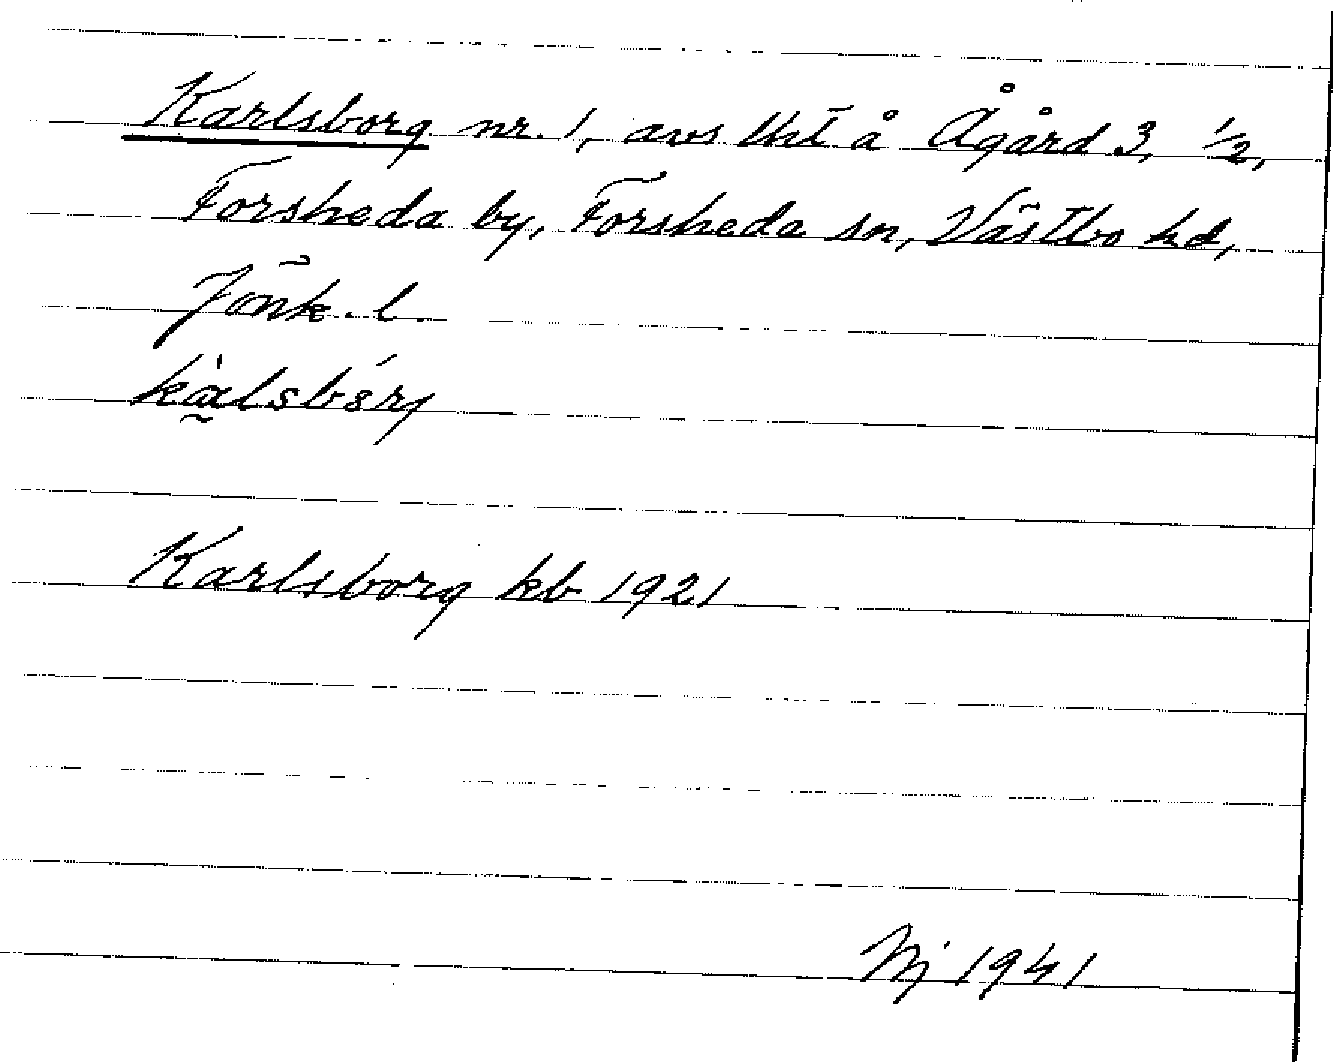 Karlsborg nr. 1, avs lht å Ågård 3, 1/2,
Forsheda by, Forsheda sn, Västbo hd,
Jönk. l.
Karlsborg kb 1921
Nj 1941